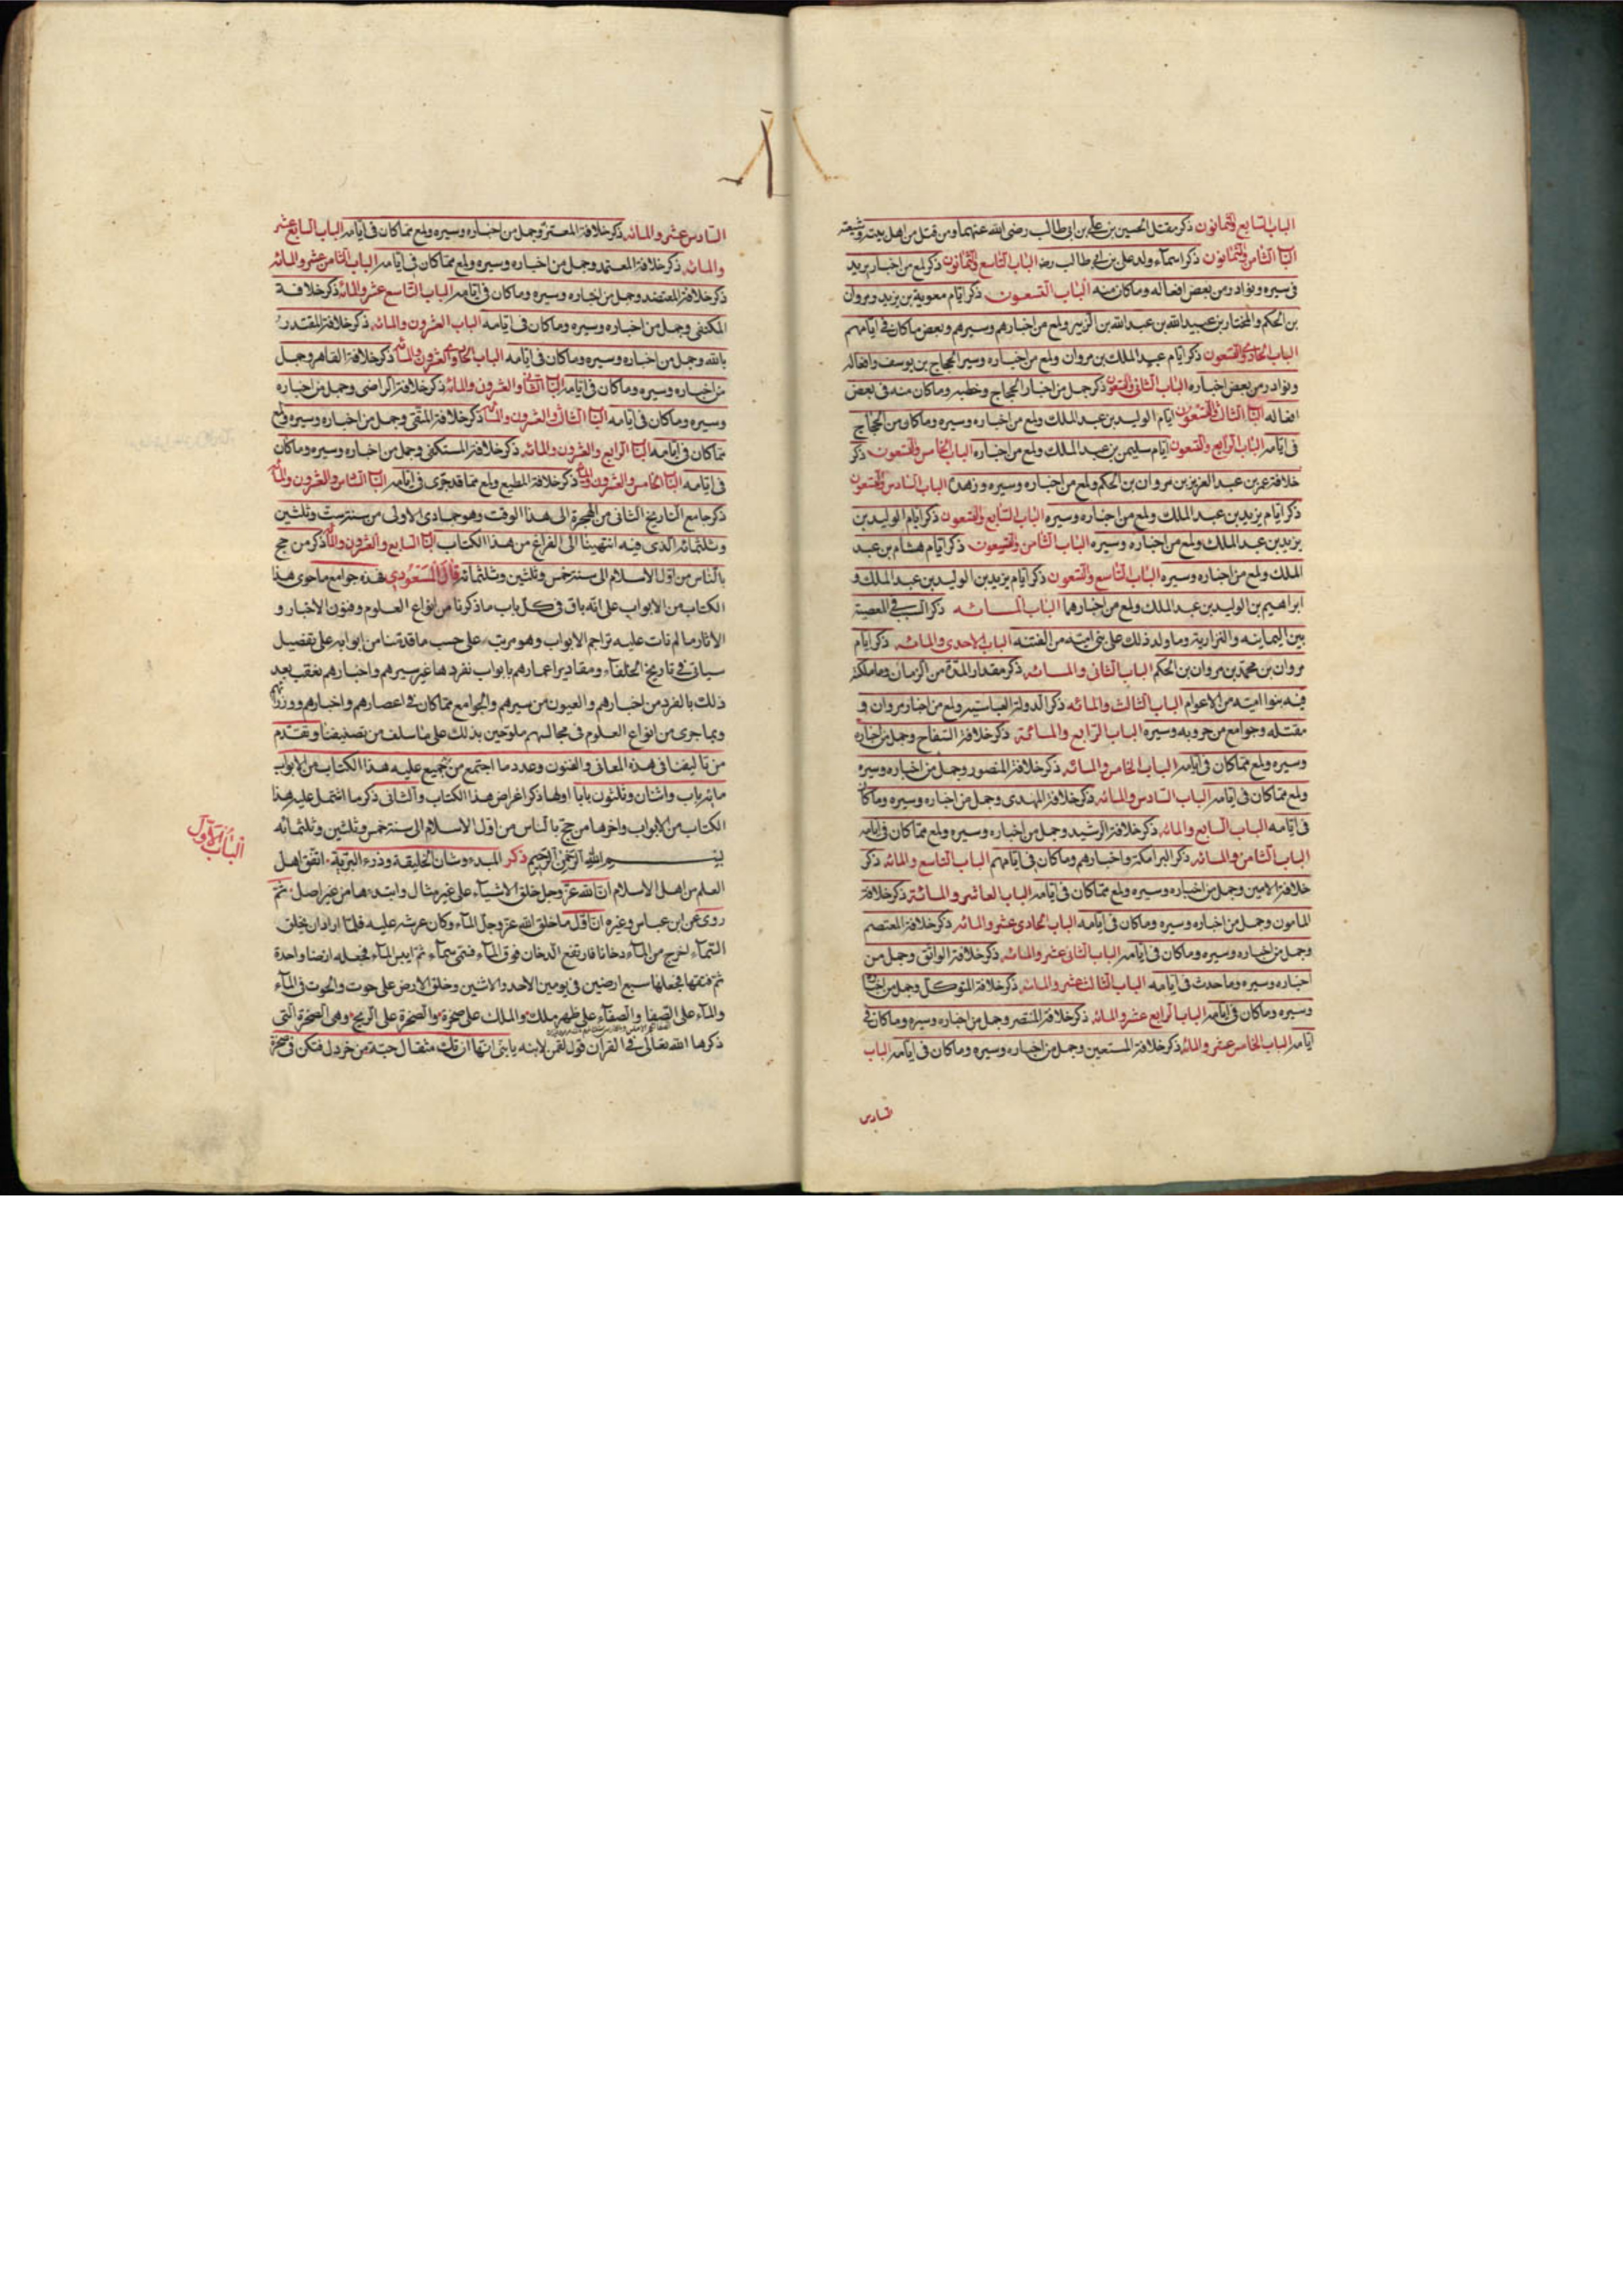 الباب السابع والثمانون ذكر مقتل الحسين بن علي بن ابي طالب رضى الله عنهما ومن قتل من اهل بيته وشيعته
الباب الثامن والثمانون ذكر اسماء ولد على بن ابي طالب رضه الباب التاسع والثمانون ذكر لمع من اخبار يزيد
فى سيره ونوادر من بعض افعاله وماكان منه الباب التسعون ذكر ايام معوية بن يزيد ومروان
بن الحكم والمختار بن عبيد الله بن عبد الله بن الزبير ولمع من اخبارهم وسيرهم وبعض ماكان فى ايامهم
الباب الحادى والتسعون ذكر ايام عبد الملك بن مروان ولمع من اخباره وسير الحجاج بن يوسف وافعاله
ونوادر من بعض اخباره الباب الثانى والتسعون ذكر جمل من اخبار الحجاج وخطبه وماكان منه فى بعض
افعاله الباب الثالث والتسعون ايام الوليد بن عبد الملك ولمع من اخباره وسيره وماكان من الحجاج
فى ايامه الباب الرابع والتسعون ايام سليمن بن عبد الملك ولمع من اخباره الباب الخامس والتسعون ذكر
خلافة عمر بن عبد العزيز بن مروان بن الحكم ولمع من اخباره وسيره وزهده الباب السادس والتسعون
ذكر ايام يزيد بن عبد الملك ولمع من اخباره وسيره الباب السابع والتسعون ذكر ايام الوليد بن
يزيد بن عبد الملك ولمع من اخباره وسيره الباب الثامن والتسعون ذكر ايام هشام بن عبد
الملك ولمع من اخباره وسيره الباب التاسع والتسعون ذكر ايام يزيد بن الوليد بن عبد الملك و
ابراهيم بن الوليد بن عبد الملك ولمع من اخبارهما الباب المائه ذكر السبب فى العصبية
بين اليمانيه والنزارية وما ولد ذلك على بنى اميه من الفتنه الباب الاحدى والمائه ذكر ايام
مروان بن محمد بن مروان بن الحكم الباب الثانى والمائه ذكر مقدار المدة من الزمان وما ملكت
فيه بنوا اميه من الاعوام الباب الثالث والمائه ذكر الدولة العباسيه ولمع من اخبار مروان و
مقتله وجوامع من حروبه وسيره الباب الرابع والمائة ذكر خلافة السفاح وجمل من اخباره
وسيره ولمع مماكان فى ايامه الباب الخامس والمائه ذكر خلافة المنصور وجمل من اخباره وسيره
ولمع مماكان فى ايامه الباب السادس والمائه ذكر خلافة المهدى وجمل من اخباره وسيره وماكان
فى ايامه الباب السابع والمائه ذكر خلافة الرشيد وجمل من اخباره وسيره ولمع مماكان فى ايامه
الباب الثامن والمائه ذكر البرامكة واخبارهم وماكان فى ايامهم الباب التاسع والمائه ذكر
خلافة الامين وجمل من اخباره وسيره ولمع مماكان فى ايامه الباب العاشر والمائة ذكر خلافة
المامون وجمل من اخباره وسيره وماكان فى ايامه الباب الحادى عشر والمائه ذكر خلافة المعتصم
وجمل من اخباره وسيره وماكان فى ايامه الباب الثانى عشر والمائه ذكر خلافة الواثق وجمل من
اخباره وسيره وما حدث فى ايامه الباب الثالث عشر والمائه ذكر خلافة المتوكل وجمل من اخباره
وسيره وماكان فى ايامه الباب الرابع عشر والمائه ذكر خلافة المنتصر وجمل من اخباره وسيره وماكان فى
ايامه الباب الخامس عشر والمائه ذكر خلافة المستعين وجمل من اخباره وسيره وماكان فى ايامه الباب
السادس
السادس عشر والمائه ذكر خلافة المعتز وجمل من اخباره وسيره ولمع مماكان فى ايامه الباب السابع عشر
والمائه ذكر خلافة المعتمد وجمل من اخباره وسيره ولمع مماكان فى ايامه الباب الثامن عشر والمائه
ذكر خلافة المعتضد وجمل من اخباره وسيره وماكان فى ايامه الباب التاسع عشر والمائه ذكر خلافة
المكتفى وجمل من اخباره وسيره وماكان فى ايامه الباب العشرون والمائه ذكر خلافة المقتدر
بالله وجمل من اخباره وسيره وماكان فى ايامه الباب الحادى والعشرون والمائه ذكر خلافة القاهر وجمل
من اخباره وسيره وماكان فى ايامه الباب الثانى والعشرون والمائه ذكر خلافة الراضى وجمل من اخباره
وسيره وماكان فى ايامه الباب الثالث والعشرون والمائه ذكر خلافة المتقى وجمل من اخباره وسيره ولمع
مماكان فى ايامه الباب الرابع والعشرون والمائه ذكر خلافة المستكفى وجمل من اخباره وسيره وماكان
فى ايامه الباب الخامس والعشرون والمائه ذكر خلافة المطيع ولمع مما قد جرى فى ايامه الباب السادس والعشرون والمائه
ذكر جامع التاريخ الثانى من الهجرة الى هذا الوقت وهو جمادى الاولى من سنة ست وثلثين
وثلثمائه الذى فيه انتهينا الى الفراغ من هذا الكتاب الباب السابع والعشرون والمائه ذكر من حج
بالناس من اول الاسلام الى سنة خمس وثلثين وثلثمائه قال المسعودي فهذه جوامع ما حوى هذا
الكتاب من الابواب على انه باق فى كل باب ما ذكرنا من انواع العلوم وفنون الاخبار و
الاثار ما لم تات عليه تراجم الابواب وهو مرتب على حسب ما قدمنا من ابوابه على تفصيل
سياتى فى تاريخ الخلفاء ومقادير اعمارهم بابواب نفردها غير سيرهم واخبارهم نعقب بعد
ذلك بالغرر من اخبارهم والعيون من سيرهم والجوامع مماكان فى اعصارهم واخبارهم ووزرائهم
وبما جرى من انواع العلوم فى مجالسهم ملوحين بذلك على ما سلف من تصنيفنا وتقدم
من تاليفنا فى هذه المعانى والفنون وعدد ما اجتمع من جميع عليه هذا الكتاب من الابواب
مائة باب واثنان وثلثون بابا اولها ذكر اغراض هذا الكتاب والثانى ذكر ما اشتمل عليه هذا
الكتاب من الابواب واخرها من حج بالناس من اول الاسلام الى سنة خمس وثلثين وثلثمائه
الباب الاول
بسم الله الرحمن الرحيم ذكر المبدء وشان الخليقة وذرء البرية اتفق اهل
العلم من اهل الاسلام ان الله عز وجل خلق الاشياء على غير مثال وابتدءها من غير اصل ثم
روى عن ابن عباس وغيره ان اول ما خلق الله عز وجل الماء وكان عرشه عليه فلما اراد ان يخلق
السماء اخرج من الماء دخانا فارتفع الدخان فوق الماء فسمى سماء ثم ايبس الماء فجعله ارضا واحدة
ثم فتقها فجعلها سبع ارضين فى يومين الاحد والاثنين وخلق الارض على حوت والحوت فى الماء
والماء على الصفا والصفا على ظهر ملك والملك على صخرة والصخرة على الريح وهى الصخرة التى
ذكرها الله تعالى فى القران قول لقمن لابنه يا بنى انها ان تك مثقال حبة من خردل فتكن فى صخرة